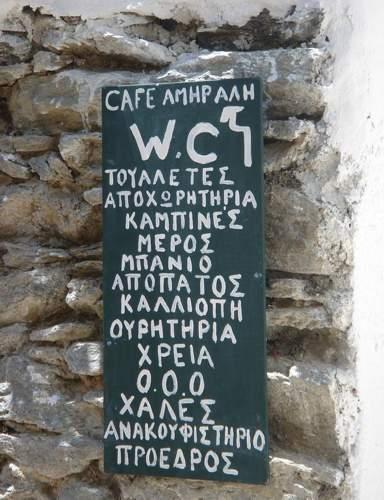 CAFÉ ΑΜΗΡΑΛΗ
W.C
ΤΟΥΑΛΕΤΕΣ
ΑΠΟΧΩΡΗΤΗΡΙΑ
ΚΑΜΠΙΝΕΣ
ΜΕΡΟΣ
ΜΠΑΝΙΟ
ΑΠΟΠΑΤΟΣ
ΚΑΛΛΙΟΠΗ
ΟΥΡΗΤΗΡΙΑ
ΧΡΕΙΑ
Ο.Ο.Ο
ΧΑΛΕΣ
ΑΝΑΚΟΥΦΙΣΤΗΡΙΟ
ΠΡΟΕΔΡΟΣ